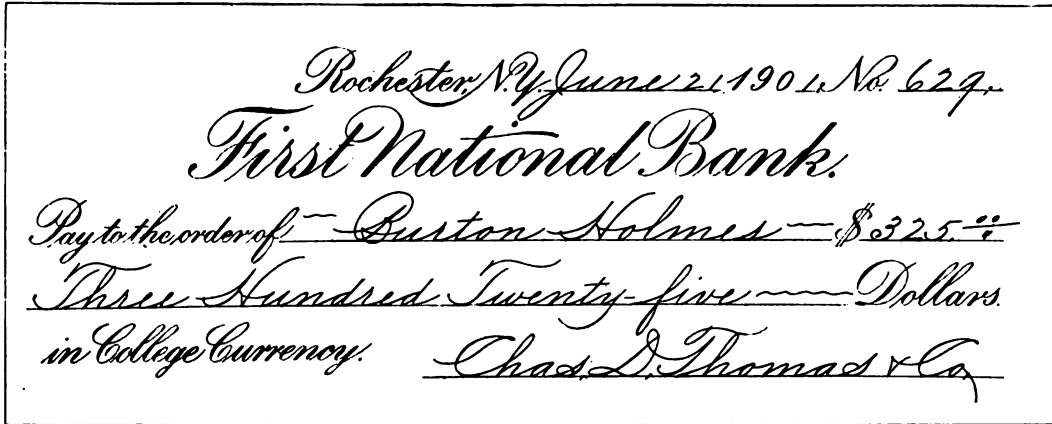 Rochester, N.Y. June 21 1901. No. 629.
First National Bank.
Pay to the order of Burton Holmes $325.00
Three Hundred Twenty-five Dollars.
in College Currency. Chas. D. Thomas & Co,